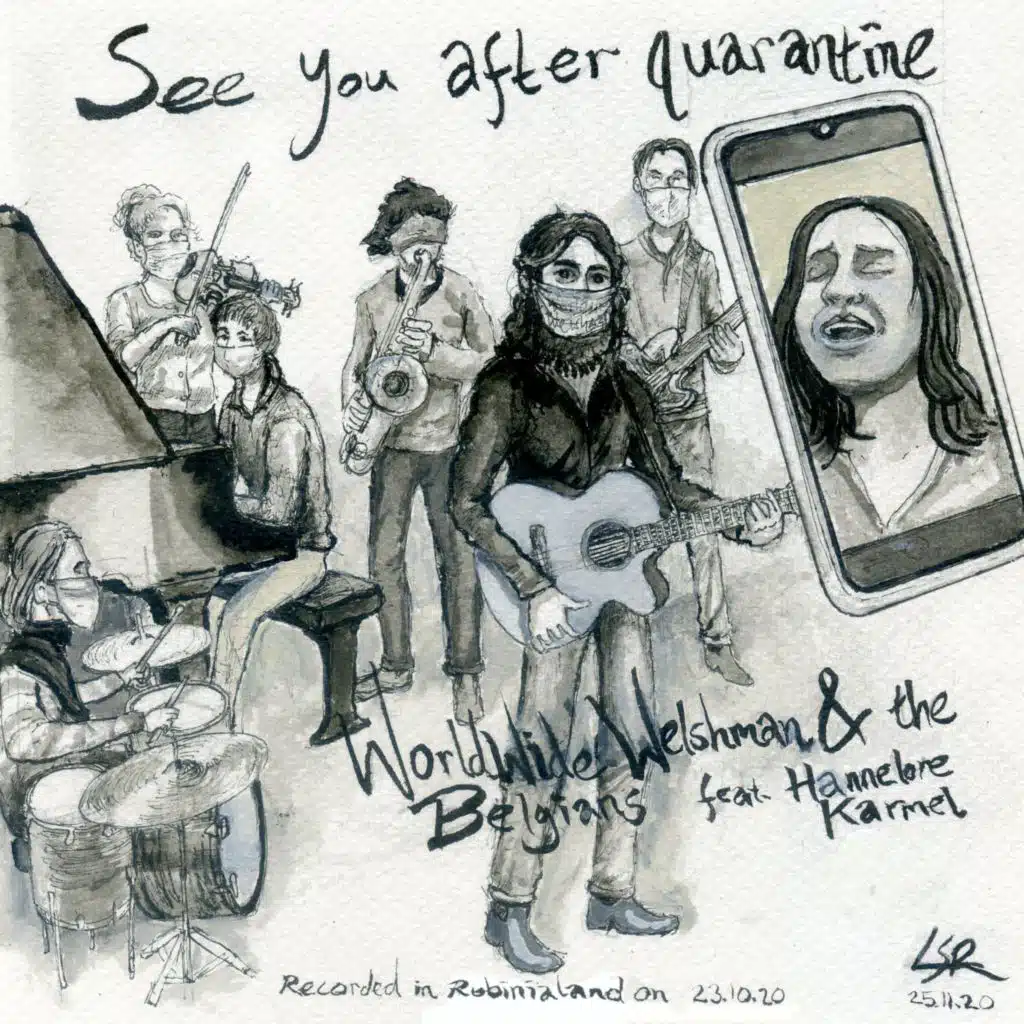 See you after quarantine
WorldWide Welshman & the
Belgians feat. Hannelore
Karmel
Recorded in Robinialand on 23.10.20
LSR
25.11.20